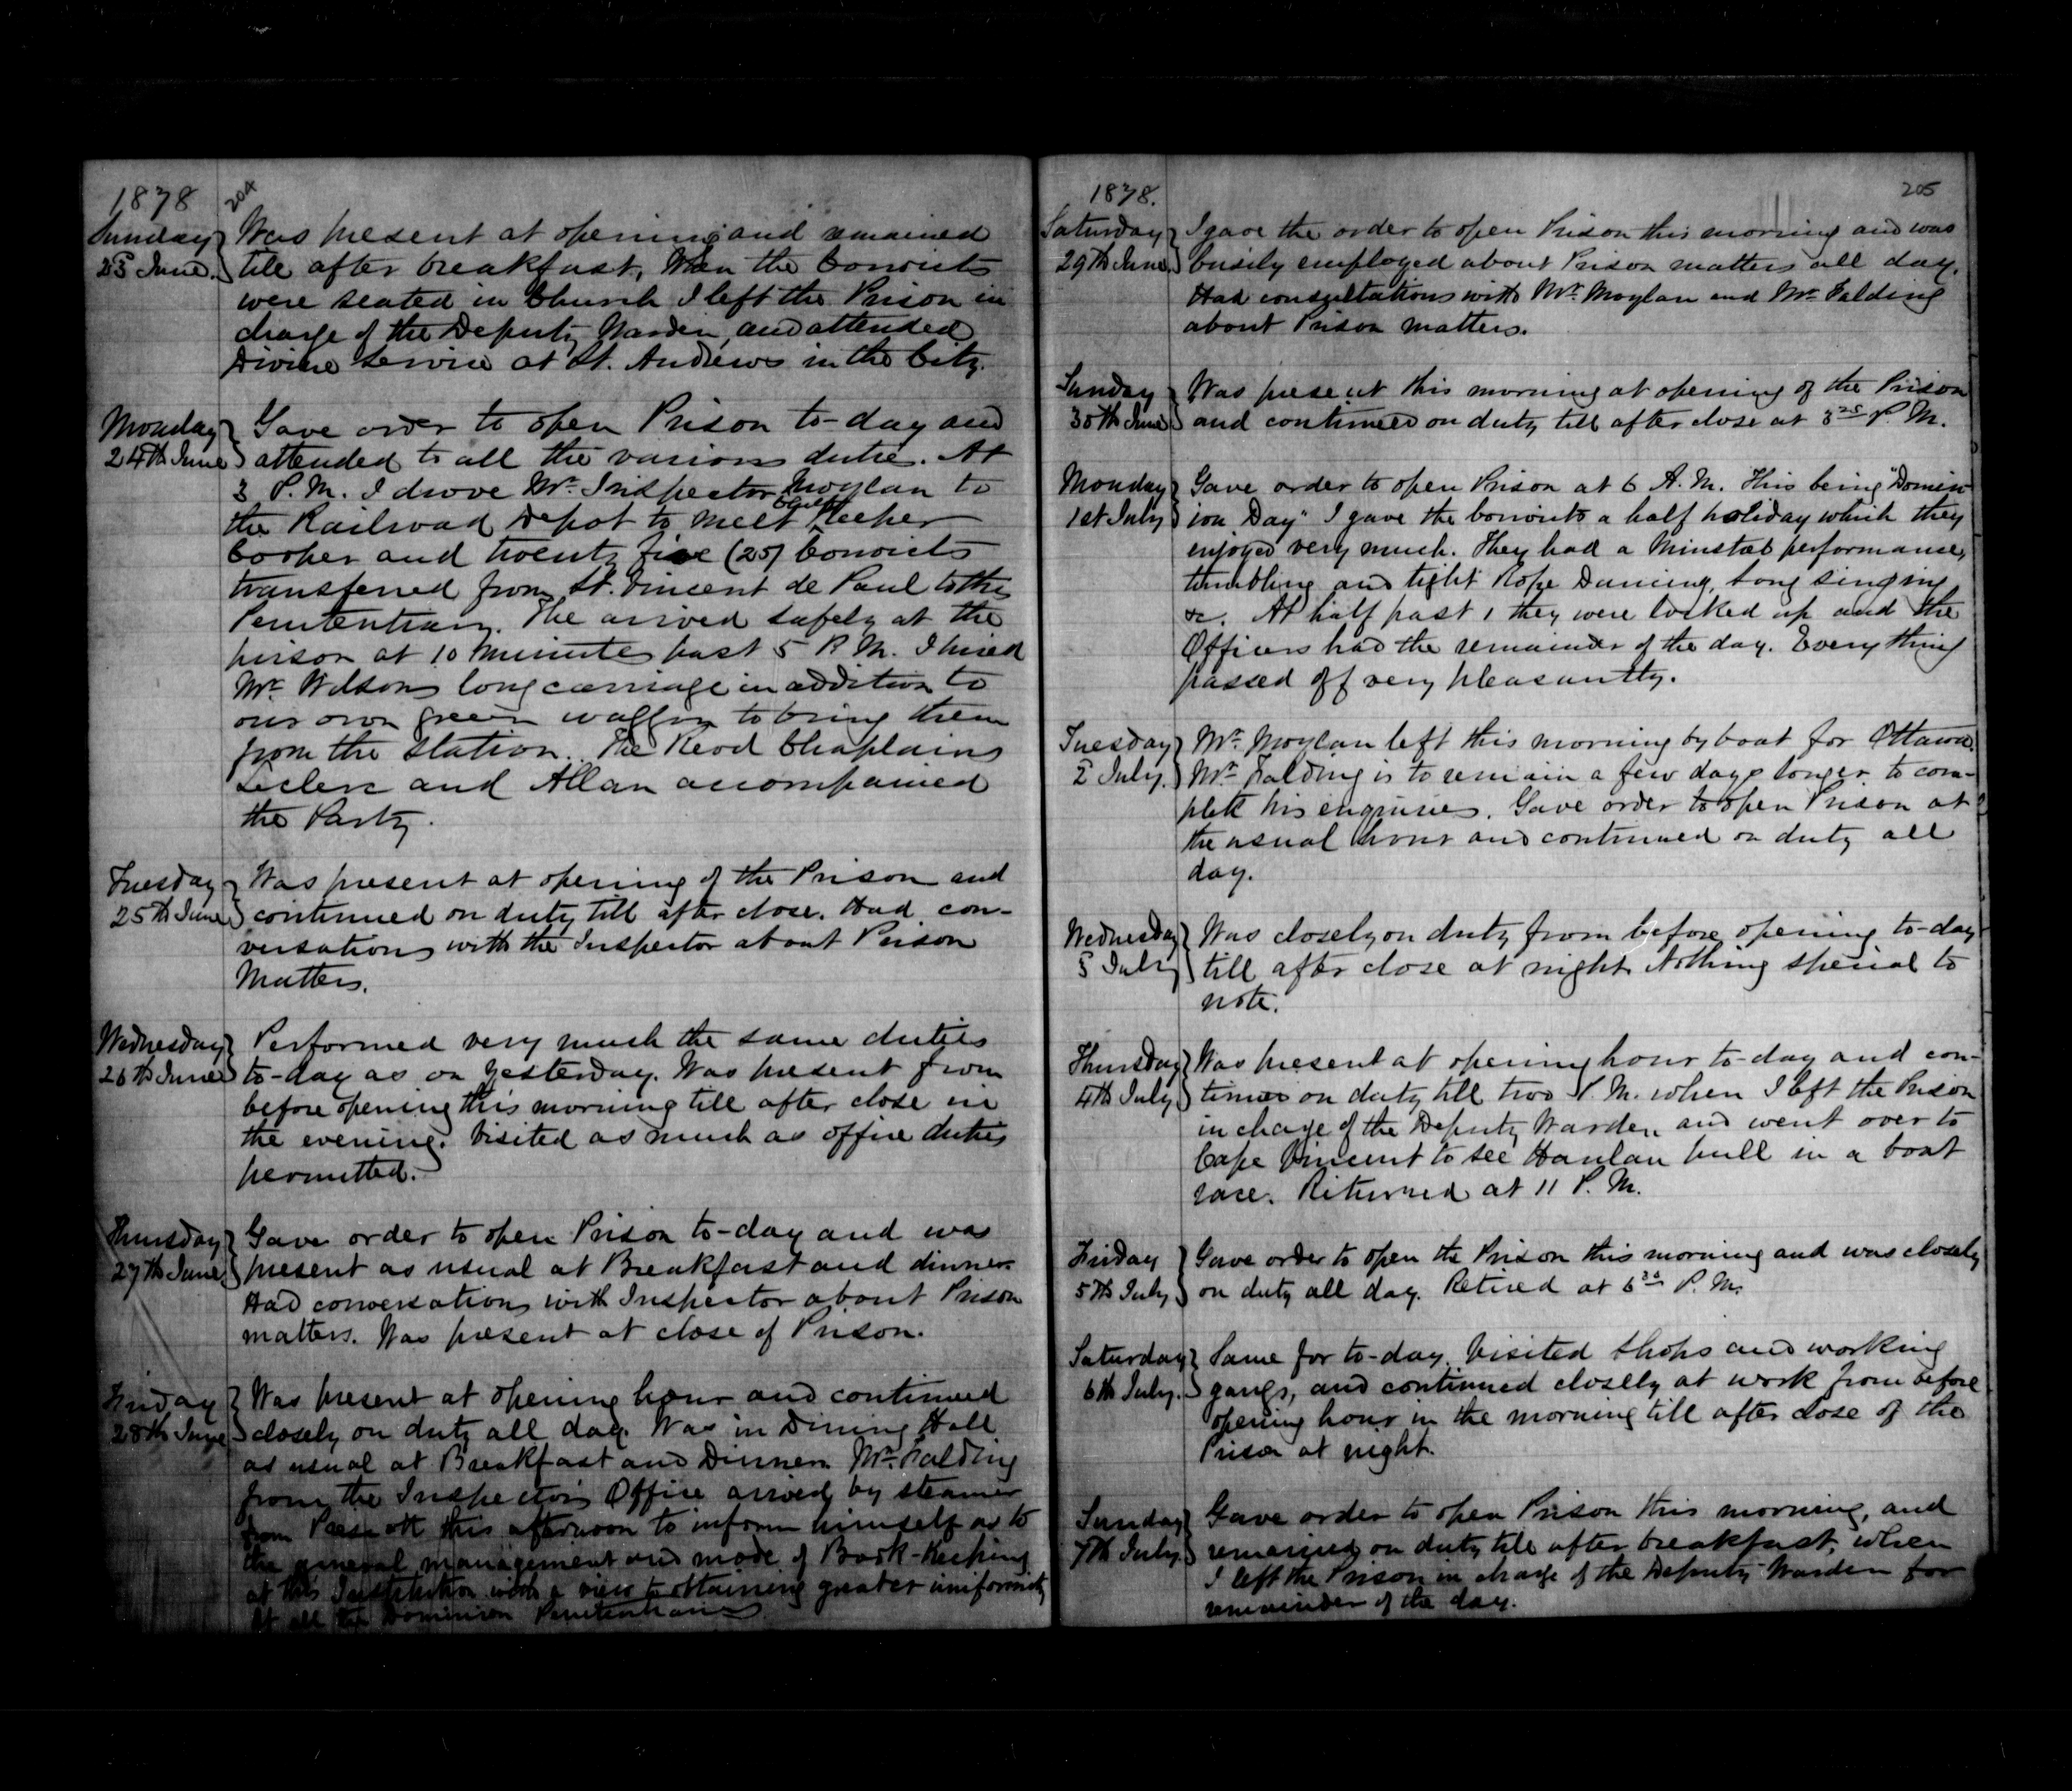 1878 204
Sunday 23 June. Was present at opening and remained
till after breakfast, When the Convicts
were seated in Church I left the Prison in
charge of the Deputy Warden, and attended
Divine Service at St. Andrews in the City.
Monday 24th June Gave order to open Prison to-day and
attended to all the various duties. At
3 P.M. I drove Mr. Inspector Moylan to
the Railroad Depot to meet Chief Keeper
Cooper and twenty five (25) Convicts
transferred from St. Vincent de Paul to this
Penitentiary. The arrived safely at the
prison at 10 minutes past 5 P.M. I hired
Mr. Wilsons long carriage in addition to
our own green waggon to bring them
from the station. The Revd Chaplains
Leclerc and Allan accompained
the Party.
Tuesday 25th June Was present at opening of the Prison and
continued on duty till after close. Had con-
versations with the Inspector about Prison
Matters.
Wednesday 26th June Performed very much the same duties
to-day as on yesterday. Was present from
before opening this morning till after close in
the evening. Visited as much as office duties
permitted.
Thursday 27th June Gave order to open Prison to-day and was
present as usual at Breakfast and dinner.
Had conversations with Inspector about Prison
matters. Was present at close of Prison.
Friday 28th June Was present at opening hour and continued
closely on duty all day. Was in Dining Hall
as usual at Breakfast and Dinner. Mr. Falding
from the Inspectors Office arrived by steamer
from Prescott this afternoon to inform himself as to
the general management and mode of Book-Keeping
at this Institution with a view to attaining greater uniformity
at all the Dominion Penitentiaries
1878. 205
Saturday 29th June I gave the order to open Prison this morning and was
busily employed about Prison matters all day.
Had consultations with Mr. Moylan and Mr. Falding
about Prison matters.
Sunday 30th June Was present this morning at opening of the Prison
and continued on duty till after close at 3 25 P.M.
Monday 1st July Gave order to open Prison at 6 A.M. This being "Domin-
ion Day" I gave the convicts a half holiday which they
enjoyed very much. They had a Minstal performance,
tumbling and tight Rope Dancing, Song singing
&c. At half past 1 they were locked up and the
Officers had the remainder of the day. Everything
passed off very pleasantly.
Tuesday 2 July. Mr. Moylan left this morning by boat for Ottawa.
Mr. Falding is to remain a few days longer to com-
plete his enquiries. Gave order to open Prison at
the usual hour and continued on duty all
day.
Wednesday 3 July Was closely on duty from before opening to-day
till after close at night. Nothing special to
note.
Thursday 4th July Was present at opening hour to-day and con-
tinued on duty till two P.M. when I left the Prison
in charge of the Deputy Warden and went over to
Cape Vincent to see Hanlan pull in a boat
race. Returned at 11 P.M.
Friday 5th July Gave order to open the Prison this morning and was closely
on duty all day. Retired at 6 30 P.M.
Saturday 6th July. Same for to-day. Visited Shops and working
gangs, and continued closely at work from before
opening hour in the morning till after close of the
Prison at night.
Sunday 7th July Gave order to open Prison this morning, and
remained on duty till after breakfast, when
I left the Prison in charge of the Deputy Warden for
remainder of the day.